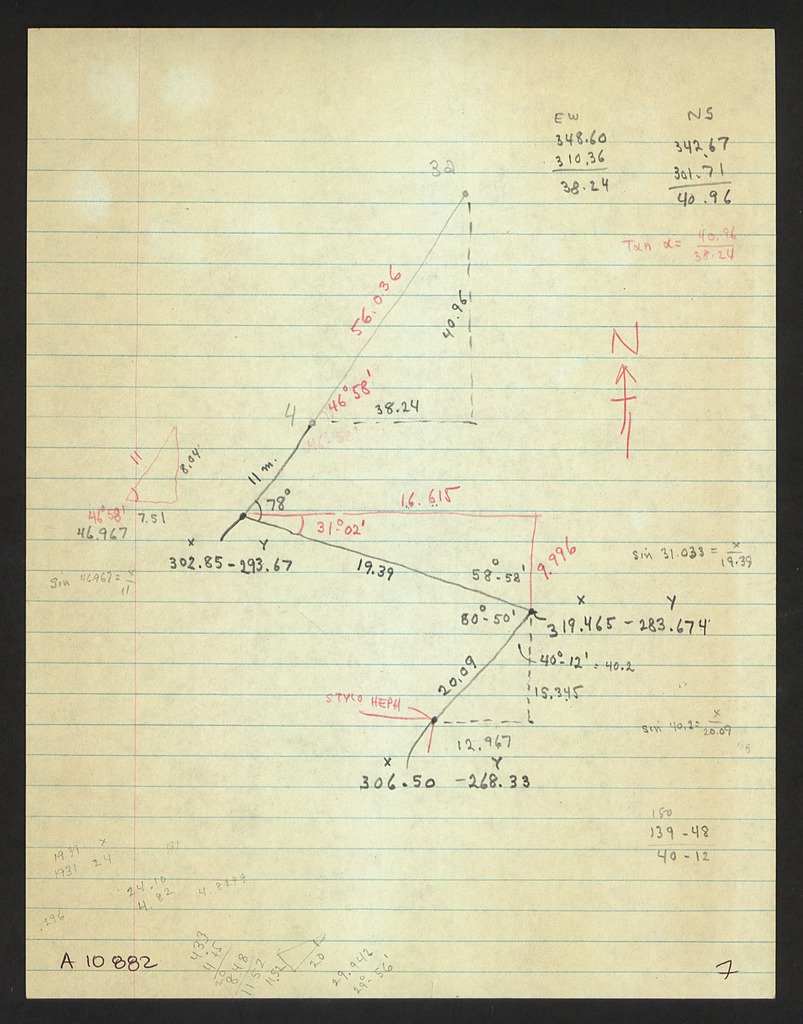 EW
348.60
310.36
38.24
NS
342.67
301.71
40.96
Tan α = 40.96
38.24
32
56.036
40.96
N
46°58'
4
38.24
11 m.
11
8.04
46°58'
7.51
46.967
78°
16.615
31°02'
9.996
X Y
302.85-293.67
19.39
58°-58'
sin 31.033 = x
19.39
sin 46.967 = x
11
80°-50'
X Y
319.465 - 283.674
40°-12' = 40.2
20.09
15.345
STYLO HEPH
12.967
sin 40.2 = x
20.09
X Y
306.50 -268.33
180
139-48
40-12
19.39 x
1931 24
24.10
4.82
4.8299
.296
A 10882
4.33
4.15
20
8.48
11.52
11.52
20
29.942
29°-56'
7